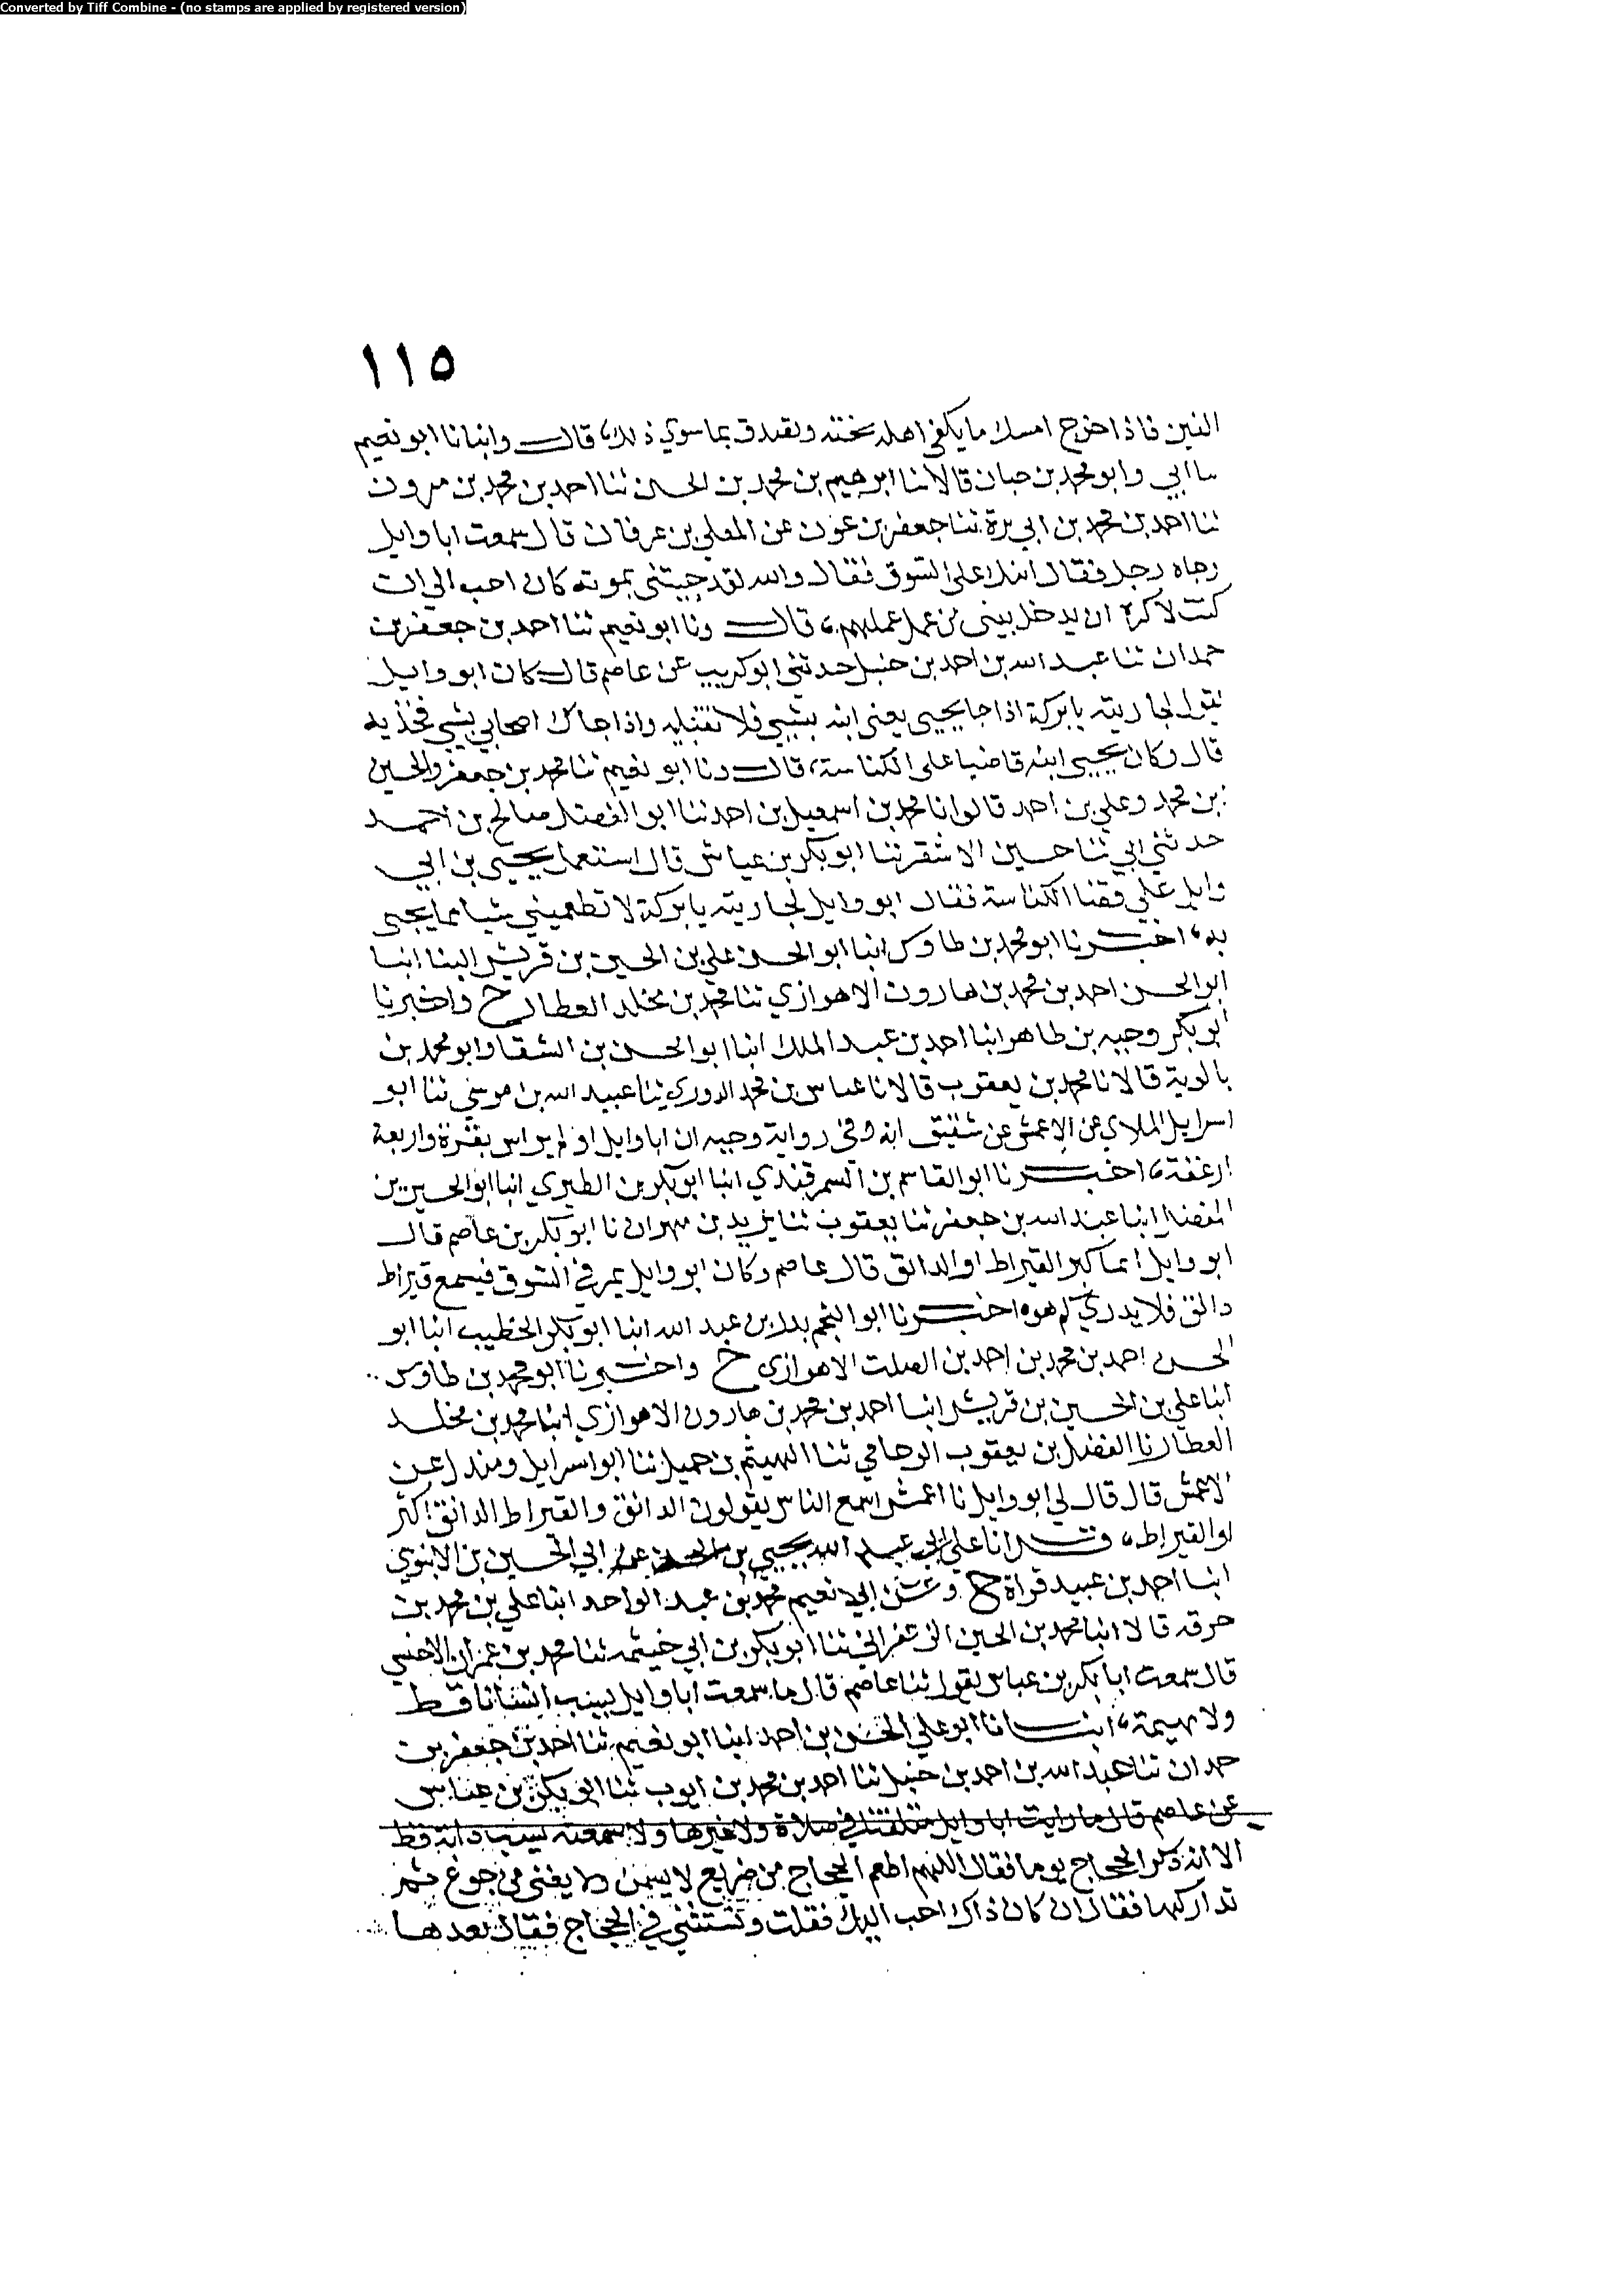 Converted by Tiff Combine - (no stamps are applied by registered version)
١١٥
الفين فاذا خرج امسك ما يكفي اهله سنته وتصدق بما سوي ذلك، قال وانبانا ابو نعيم
نا ابي وابو محمد بن حبان قالا نا ابرهيم بن محمد بن الحسن ثنا احمد بن محمد بن
ثنا احمد بن محمد بن ابي برة ثنا جعفر بن عون عن المعلي بن عرفان قال سمعت ابا وايل
وجاه رجل فقال ابنك علي السوق فقال والله لقد جيتني بموته كان احب الي ان
كنت لاكره ان يدخل بيتي من عمل عملهم، قال ونا ابو نعيم ثنا احمد بن جعفر بن
حمدان ثنا عبد الله بن احمد بن حنبل حدثني ابو كريب عن عاصم قال كان ابو وايل
يقول لجاريته يا بركة اذا جا يحيى يعني ابنه بشيي فلا تقبليه واذا جاك اصحابي بشيي فخذيه
قال وكان يحيى ابنه قاضيا على الكناسة، قال ونا ابو نعيم ثنا محمد بن جعفر والحسين
بن محمد وعلي بن احمد قالوا نا محمد بن اسمعيل بن احمد ثنا ابو الفضل صالح بن احمد
حدثني ابي ثنا حسين الاشقر ثنا ابو بكر بن عياش قال استعمل يحيى بن ابي
وايل علي قضا الكناسة فقال ابو وايل لجاريته يا بركة لا تطعميني شيا مما يجيى
به، اخبرنا ابو محمد بن طاوس انبا ابو الحسن علي بن الحسين بن قريش البنا انبا
ابو الحسن احمد بن محمد بن هارون الاهوازي ثنا محمد بن مخلد العطار ح واخبرنا
ابو بكر وجيه بن طاهر انبا احمد بن عبد الملك انبا ابو الحسن بن السقا وابو محمد بن
بالوية قالا نا محمد بن يعقوب قالا نا عباس بن محمد الدوري ثنا عبيد الله بن موسي ثنا ابو
اسرايل الملاي عن الاعمش عن شقيق انه وفي رواية وجيه ان ابا وايل اولم براس بقرة واربعة
ارغفة، اخبرنا ابو القاسم بن السمرقندي انبا ابو بكر بن الطبري انبا ابو الحسين بن
الفضل انبا عبد الله بن جعفر ثنا يعقوب ثنا يزيد بن مهران نا ابو بكر بن عاصم قال
ابو وايل ايما اكبر القيراط او الدانق قال عاصم وكان ابو وايل يمر في السوق فيسمع قيراط
دانق فلا يدري كم هو، اخبرنا ابو النجم بدر بن عبد الله انبا ابو بكر الخطيب انبا ابو
الحسن احمد بن محمد بن احمد بن الصلت الاهوازي ح واخبرنا ابو محمد بن طاوس
انبا علي بن الحسين بن قريش انبا احمد بن محمد بن هارون الاهوازي انبا محمد بن مخلد
العطار نا الفضل بن يعقوب الرخامي ثنا الهيثم بن جميل ثنا ابو اسرايل ومندل عن
الاعمش قال قال لي ابو وايل نا اعمش اسمع الناس يقولون الدانق والقيراط الدانق اكثر
او القيراط، قرانا علي ابي عبد الله يحيى بن الحسن عن ابي الحسين بن الابنوي
انبا احمد بن عبيد قراة ح وعن ابي نعيم محمد بن عبد الواحد انبا علي بن محمد بن
خزفه قالا انبا محمد بن الحسين الزعفراني ثنا ابو بكر بن ابي خيثمه ثنا محمد بن عمران الاخنسي
قال سمعت ابا بكر بن عياش يقول ثنا عاصم قال ما سمعت ابا وايل يسب انسانا قط
ولا بهيمة، انبانا ابو علي الحسن بن احمد انبا ابو نعيم ثنا احمد بن جعفر بن
حمدان ثنا عبد الله بن احمد بن حنبل ثنا احمد بن محمد بن ايوب ثنا ابو بكر بن عياش
عن عاصم قال ما رايت ابا وايل ملتفتا في صلاة ولا غيرها ولا سمعته يسب دابة قط
الا انه ذكر الحجاج يوما فقال اللهم اطعم الحجاج من ضريع لا يسمن ولا يغني من جوع ثم
تداركها فقال ان كان ذاك احب اليك فقلت وتستثني في الحجاج فقال نعدها